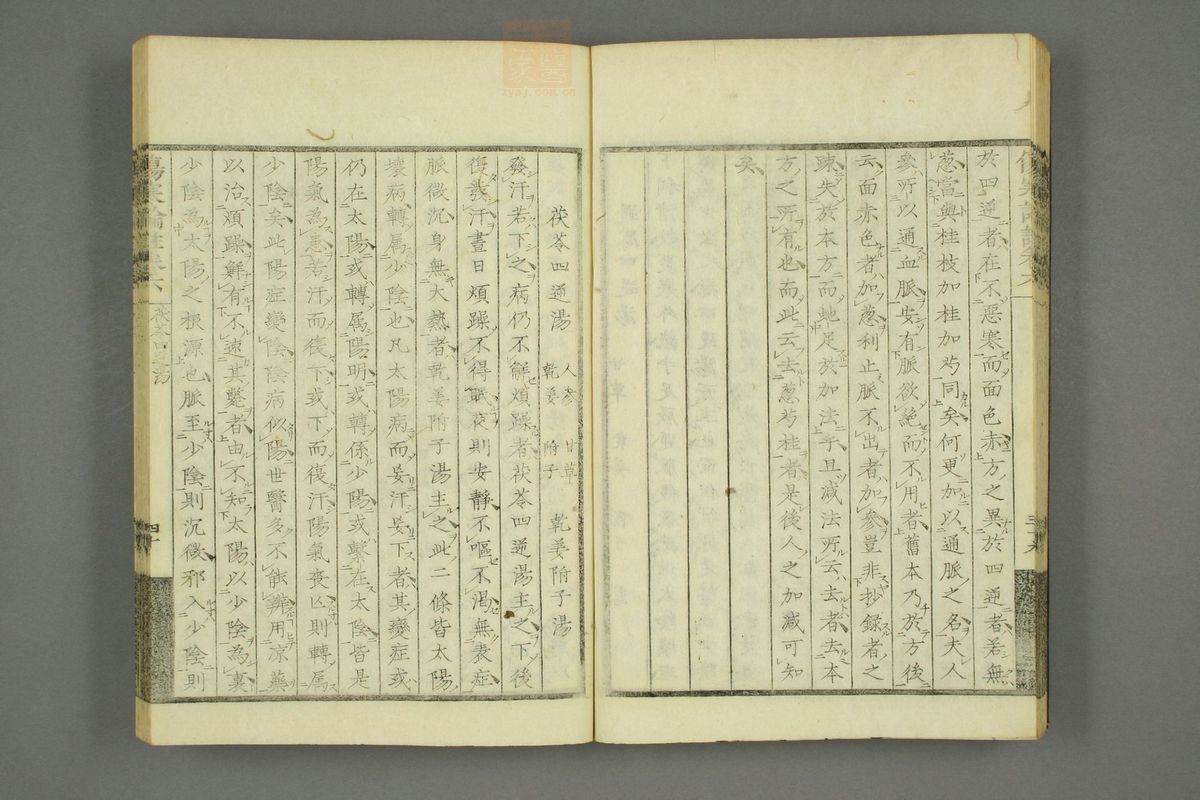 於四逆者在不惡寒而面色赤方之異於四逆者若無
葱當與桂枝加桂加芍同矣何更加以通脈之名夫人
參所以通血脈安有脈欲絶而不用者舊本乃於方後
云面赤色者加葱利止脈不出者加參豈非抄録者之
疎失於本方而蛇足於加法乎且減法所云去者去本
方之所有也而此云去葱芍桂者是後人之加減可知
矣
茯苓四逆湯 人參 甘草 乾姜 附子 乾姜附子湯
發汗若下之病仍不解煩躁者茯苓四逆湯主之下後
復發汗晝日煩躁不得眠夜則安靜不嘔不渴無表症
脈微沉身無大熱者乾姜附子湯主之此二條皆太陽
壞病轉属少陰也凡太陽病而妄汗妄下者其變症或
仍在太陽或轉属陽明或轉係少陽或繫在太陰皆是
陽氣為患若汗而復下或下而復汗陽氣喪亾則轉属
少陰矣此陽症變陰陰病似陽世醫多不能辨用凉藥
以治煩躁鮮有不速其斃者由不知太陽以少陰為裏
少陰為太陽之根源也脈至少陰則沉微邪入少陰則
傷寒論註卷六 茯苓四逆湯 四十